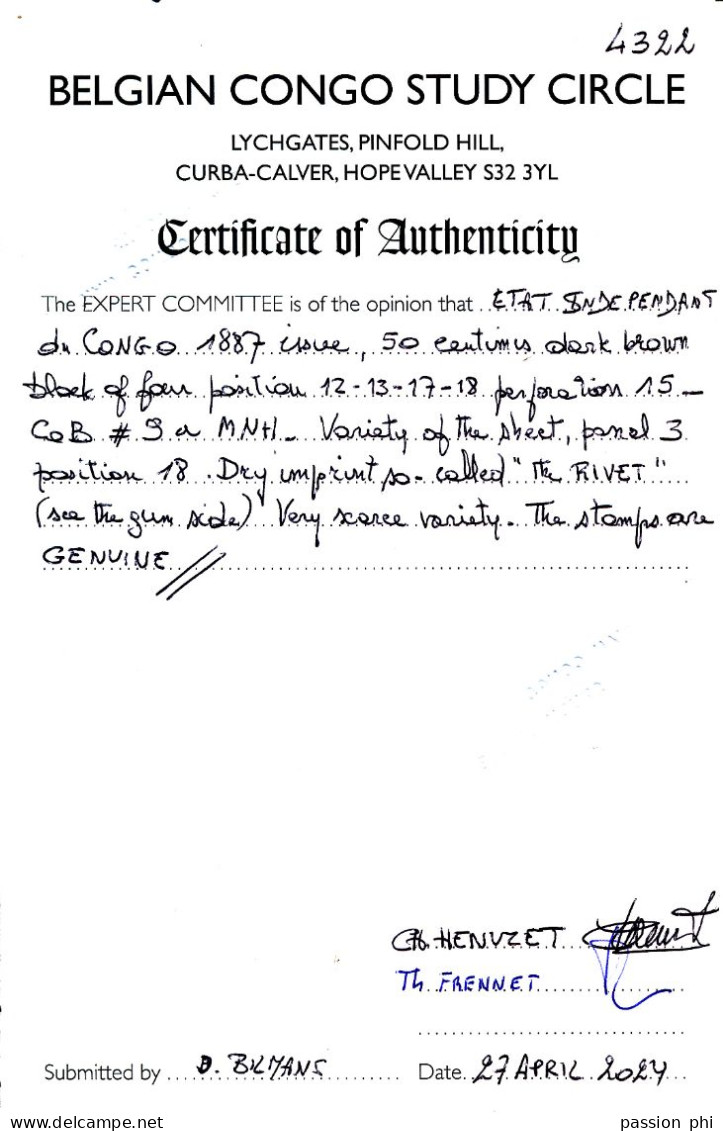 4322
BELGIAN CONGO STUDY CIRCLE
LYCHGATES, PINFOLD HILL,
CURBA-CALVER, HOPE VALLEY S32 3YL
Certificate of Authenticity
The EXPERT COMMITTEE is of the opinion that ETAT INDEPENDANT
du CONGO 1887 issue, 50 centimes dark brown
block of four position 12-13-17-18 perforation 15-
CoB # 9 a MNH- Variety of the sheet, panel 3
position 18. Dry imprint so-called "the RIVET"
(see the gum side) Very scarce variety. The stamps are
GENUINE
Ch. HENUZET
Th FRENNET
Submitted by D. Date 27 APRIL 2024
www.delcampe.net passion phi